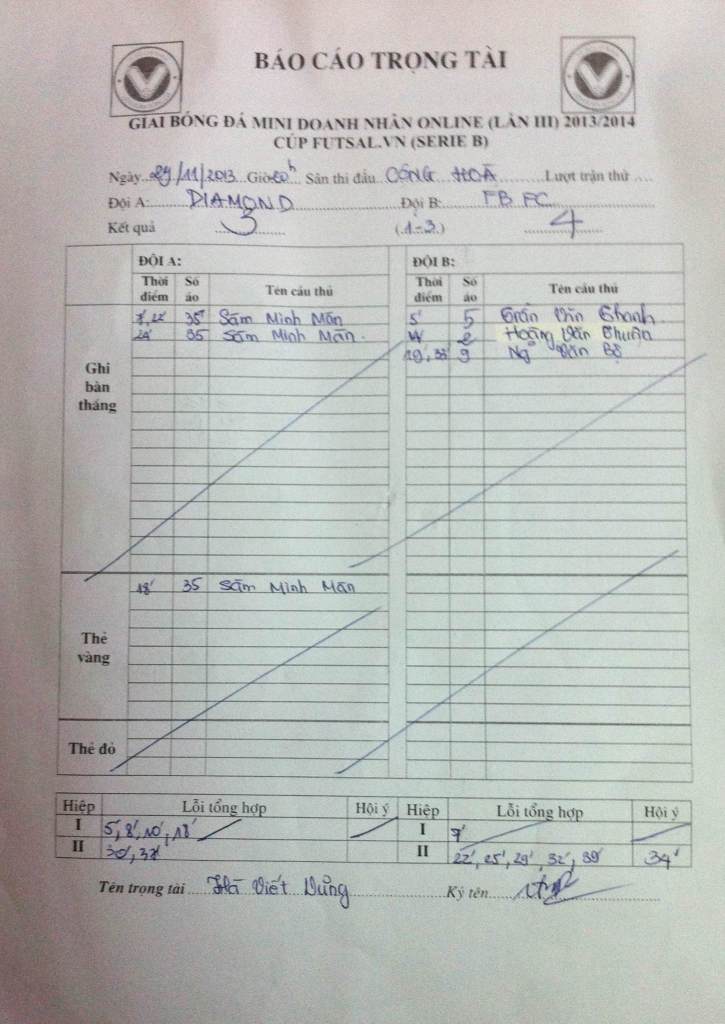 BÁO CÁO TRỌNG TÀI
GIẢI BÓNG ĐÁ MINI DOANH NHÂN ONLINE (LẦN III) 2013/2014
CÚP FUTSAL.VN (SERIE B)
Ngày 29/11/2013 Giờ 20h Sân thi đấu CỘNG HOÀ Lượt trận thứ
Đội A: DIAMOND Đội B: FB FC
Kết quả 3 (1-3) 4
ĐỘI A: ĐỘI B:
Thời điểm Số áo Tên cầu thủ Thời điểm Số áo Tên cầu thủ
Ghi bàn thắng
35 Sầm Minh Mẫn 5' 5 Trần Văn Thanh
24' 35 Sầm Minh Mẫn 2 Hoàng Văn Thuận
19', 38' 9 Ng Văn Bộ
Thẻ vàng
18' 35 Sầm Minh Mẫn
Thẻ đỏ
Hiệp Lỗi tổng hợp Hội ý Hiệp Lỗi tổng hợp Hội ý
I 5', 8', 10', 18' I 7'
II 30', II 22', 25', 29', 32', 39' 34'
Tên trọng tài Hà Viết Dũng Ký tên